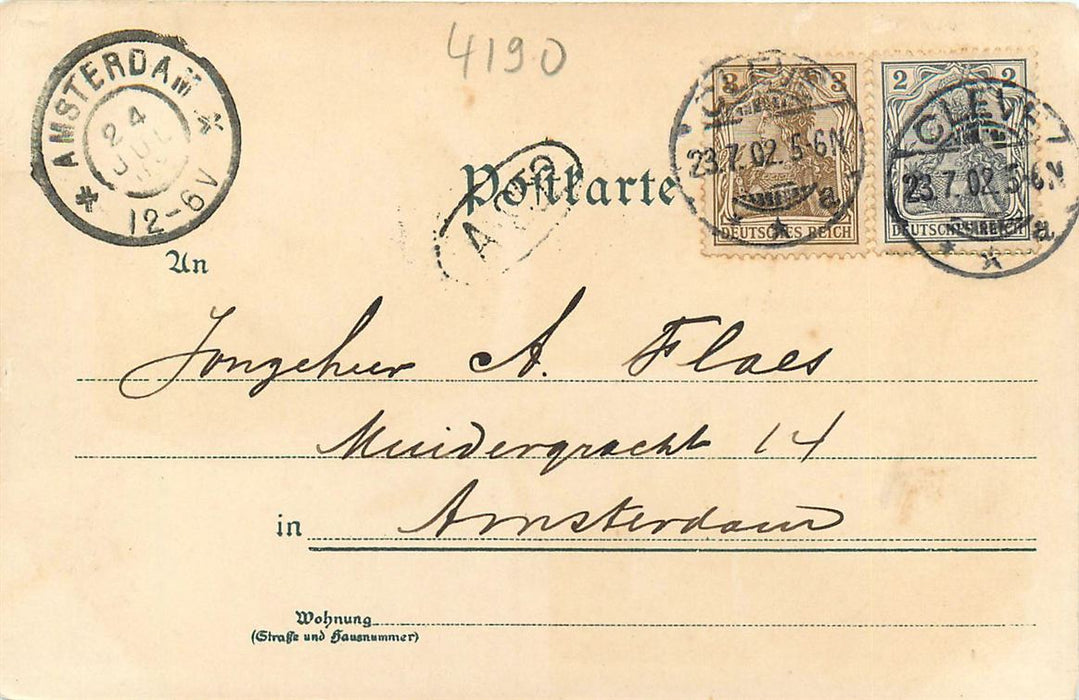 4190
AMSTERDAM
24
JUL
12-6V
3 3
DEUTSCHES REICH
2 2
DEUTSCHES REICH
CLEVE
23.7.02.5-6N.
a
CLEVE
23.7.02.5-6N
a
Postkarte
An
Jongeheer A. Flaes
Muidergracht 14
in Amsterdam
Wohnung
(Straße und Hausnummer)